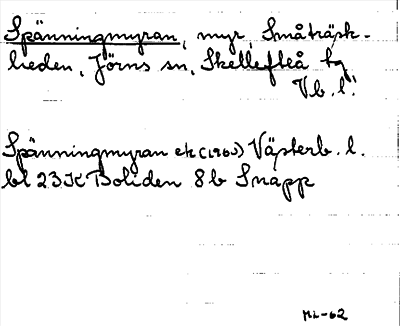 Spänningmyran, myr, Småträsk-
heden, Jörns sn, Skellefteå tg
Vb. l.
Spänningmyran ek (1960) Västerb. l.
bl 23K Boliden 8b Snapp
ML-62